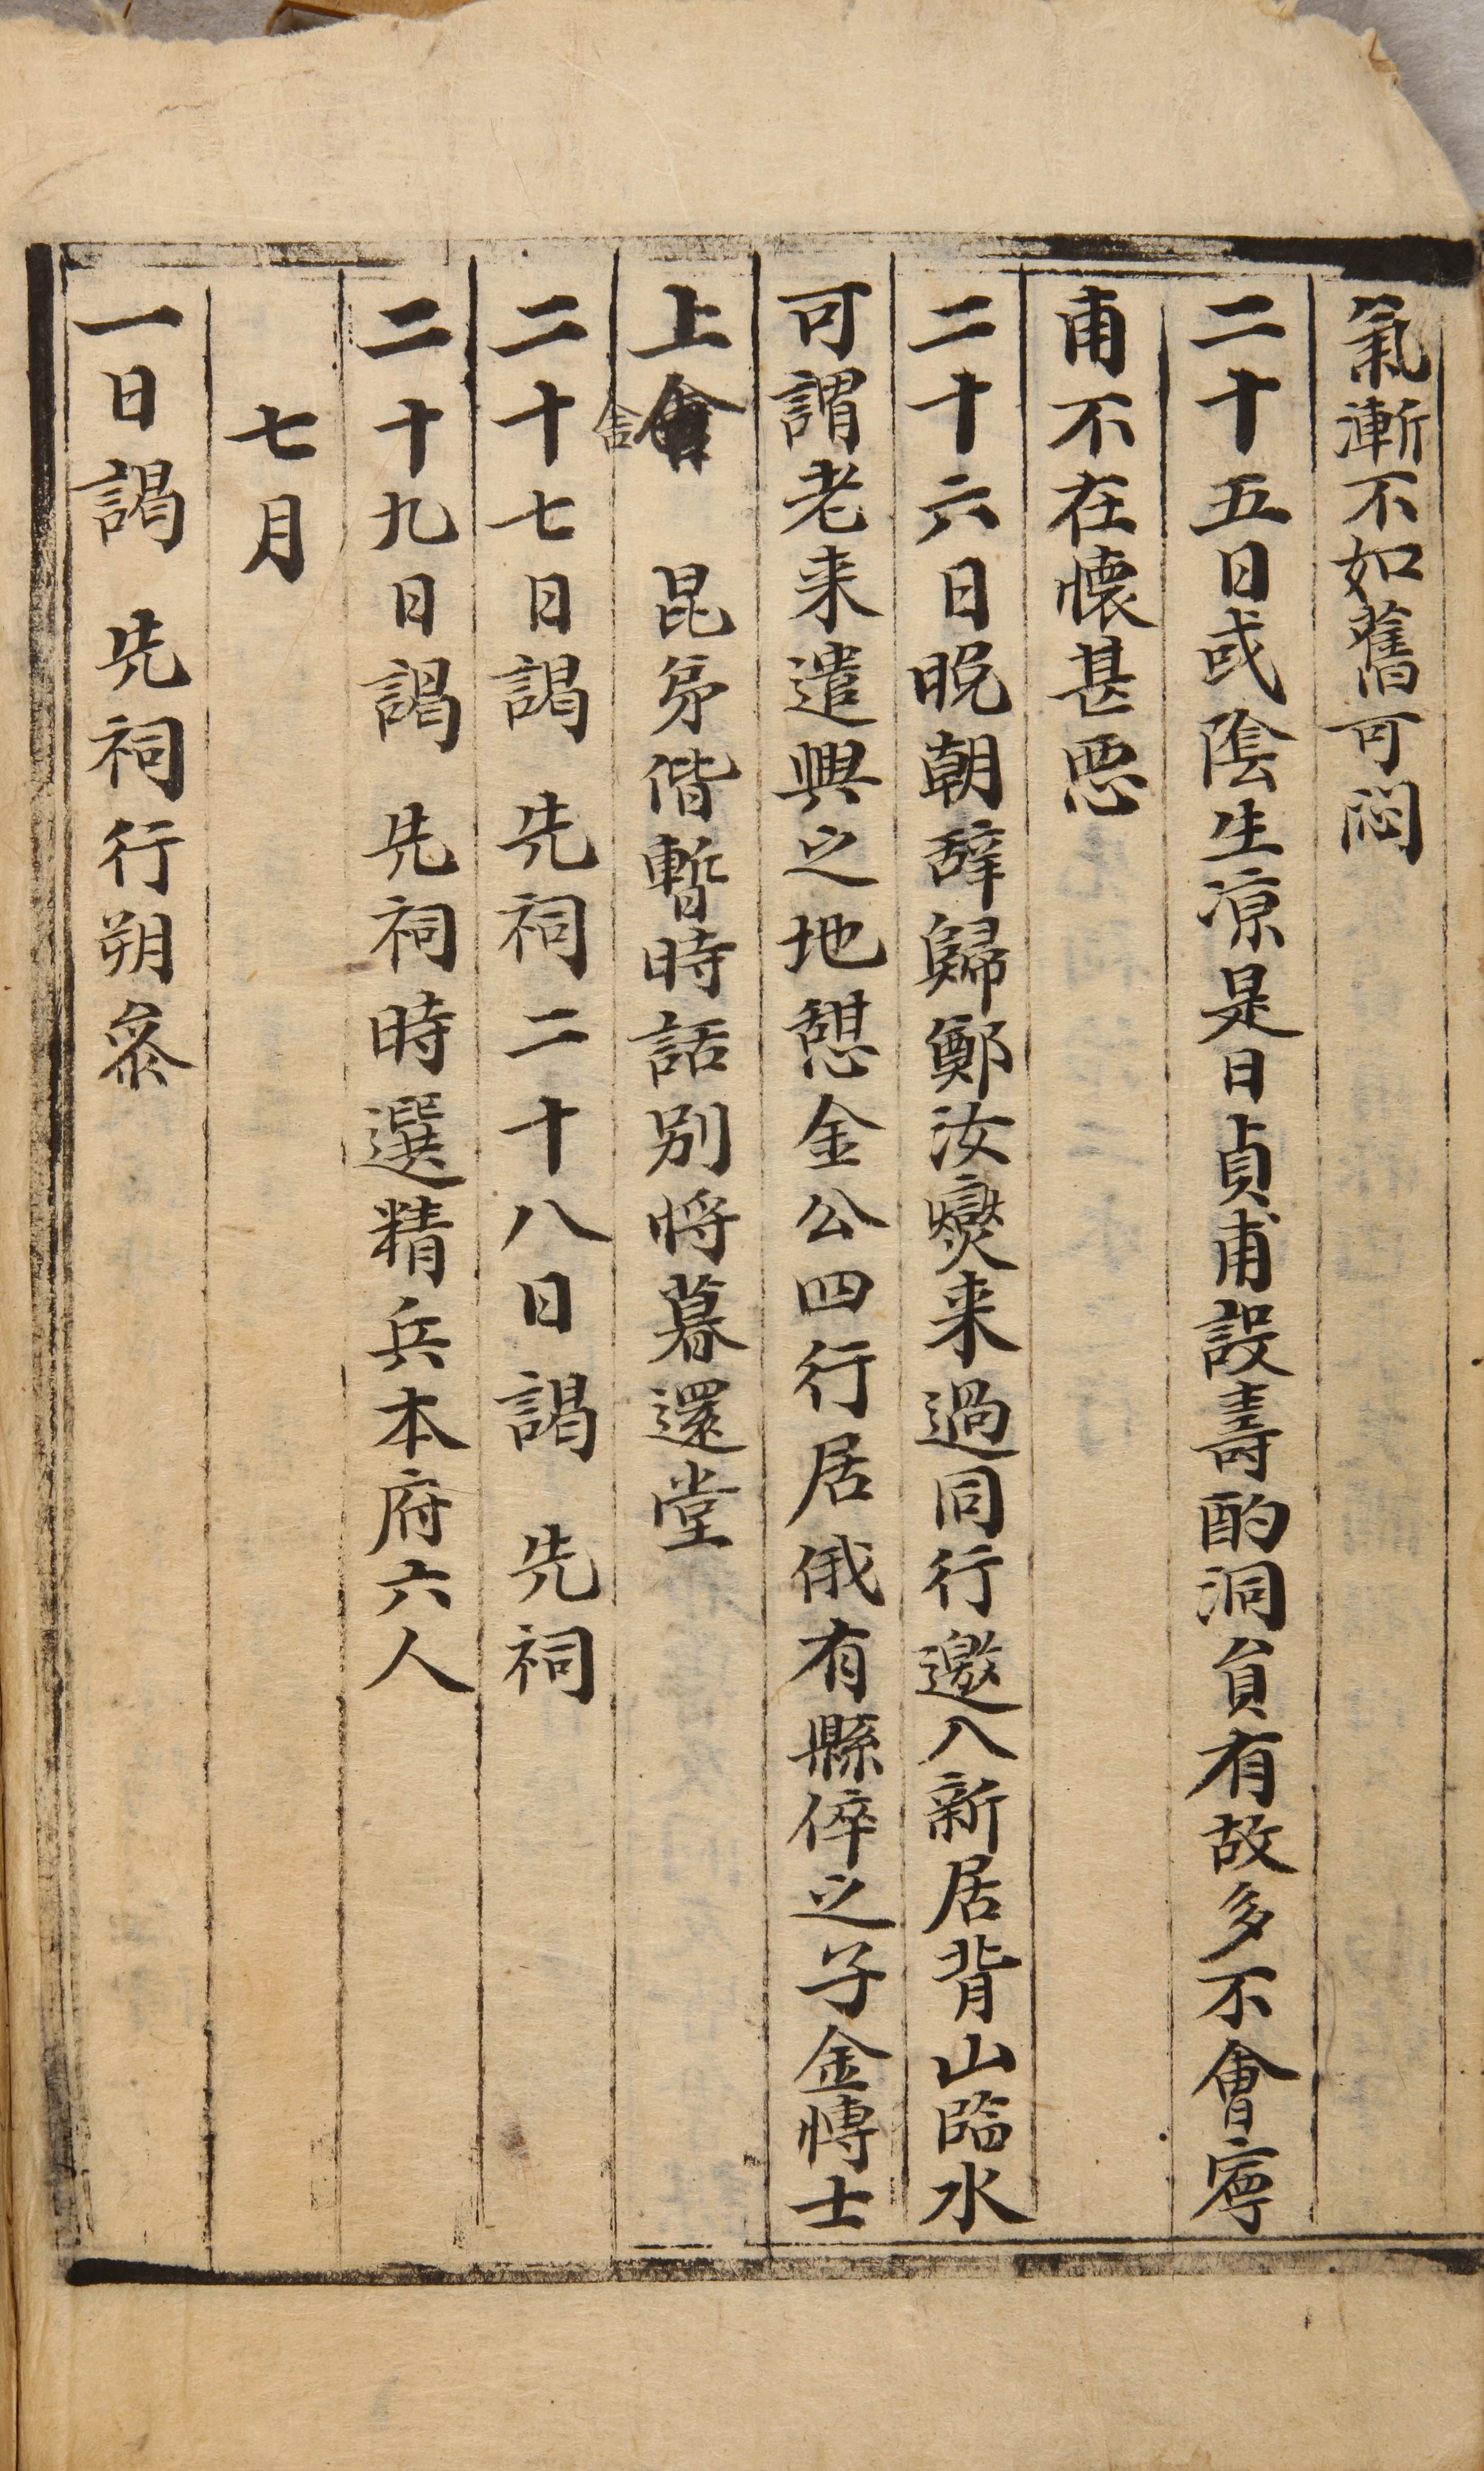 氣漸不如舊可悶
二十五日或陰生凉是日貞甫設壽酌洞員有故多不會寧
甫不在懷甚惡
二十六日晩朝辞歸鄭汝燮来過同行邀入新居背山臨水
可謂老来遣興之地憩金公四行居俄有縣倅之子金愽士
上舍 昆弟偕暫時話別将暮還堂
二十七日謁 先祠二十八日謁 先祠
二十九日謁 先祠時選精兵本府六人
七月
一日謁 先祠行朔叅